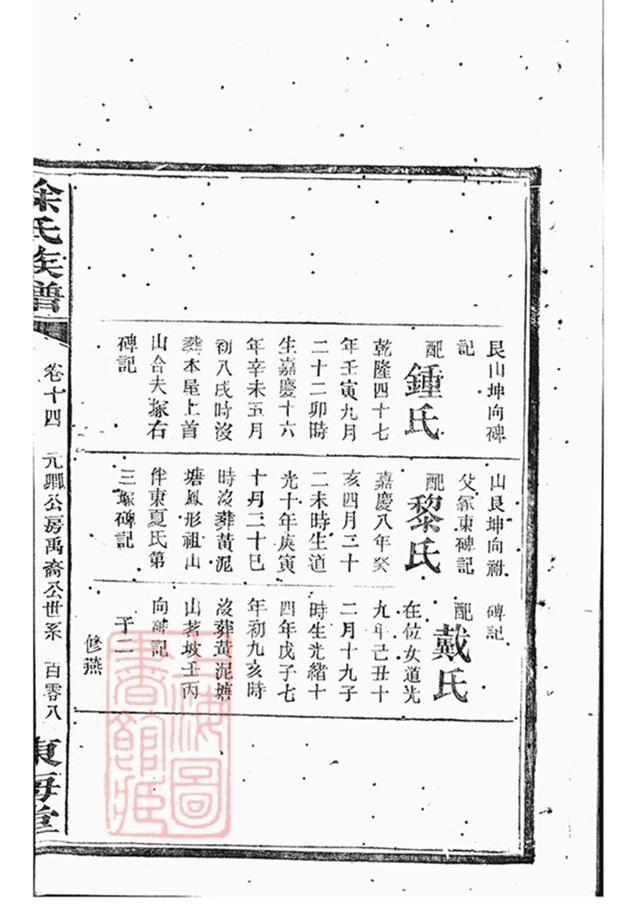 艮山坤向碑
記
配鍾氏
乾隆四十七
年壬寅九月
二十二卯時
生嘉慶十六
年辛未五月
初八戌時沒
葬本屋上首
山合夫塚右
碑記
山艮坤向祔
父冢東碑記
配黎氏
嘉慶八年癸
亥四月三十
二未時生道
光十年庚寅
十月二十巳
時沒葬黃泥
塘鳳形祖山
伴東夏氏第
三塚碑記
碑記
配戴氏
在位女道光
九年己丑十
二月十九子
時生光緒十
四年戊子七
年初九亥時
沒葬黃泥塘
山茗坡壬丙
向碑記
子二
修燕
徐氏族譜
卷十四
元卿公房禹裔公世系
百零八
東海堂
上海圖書館藏